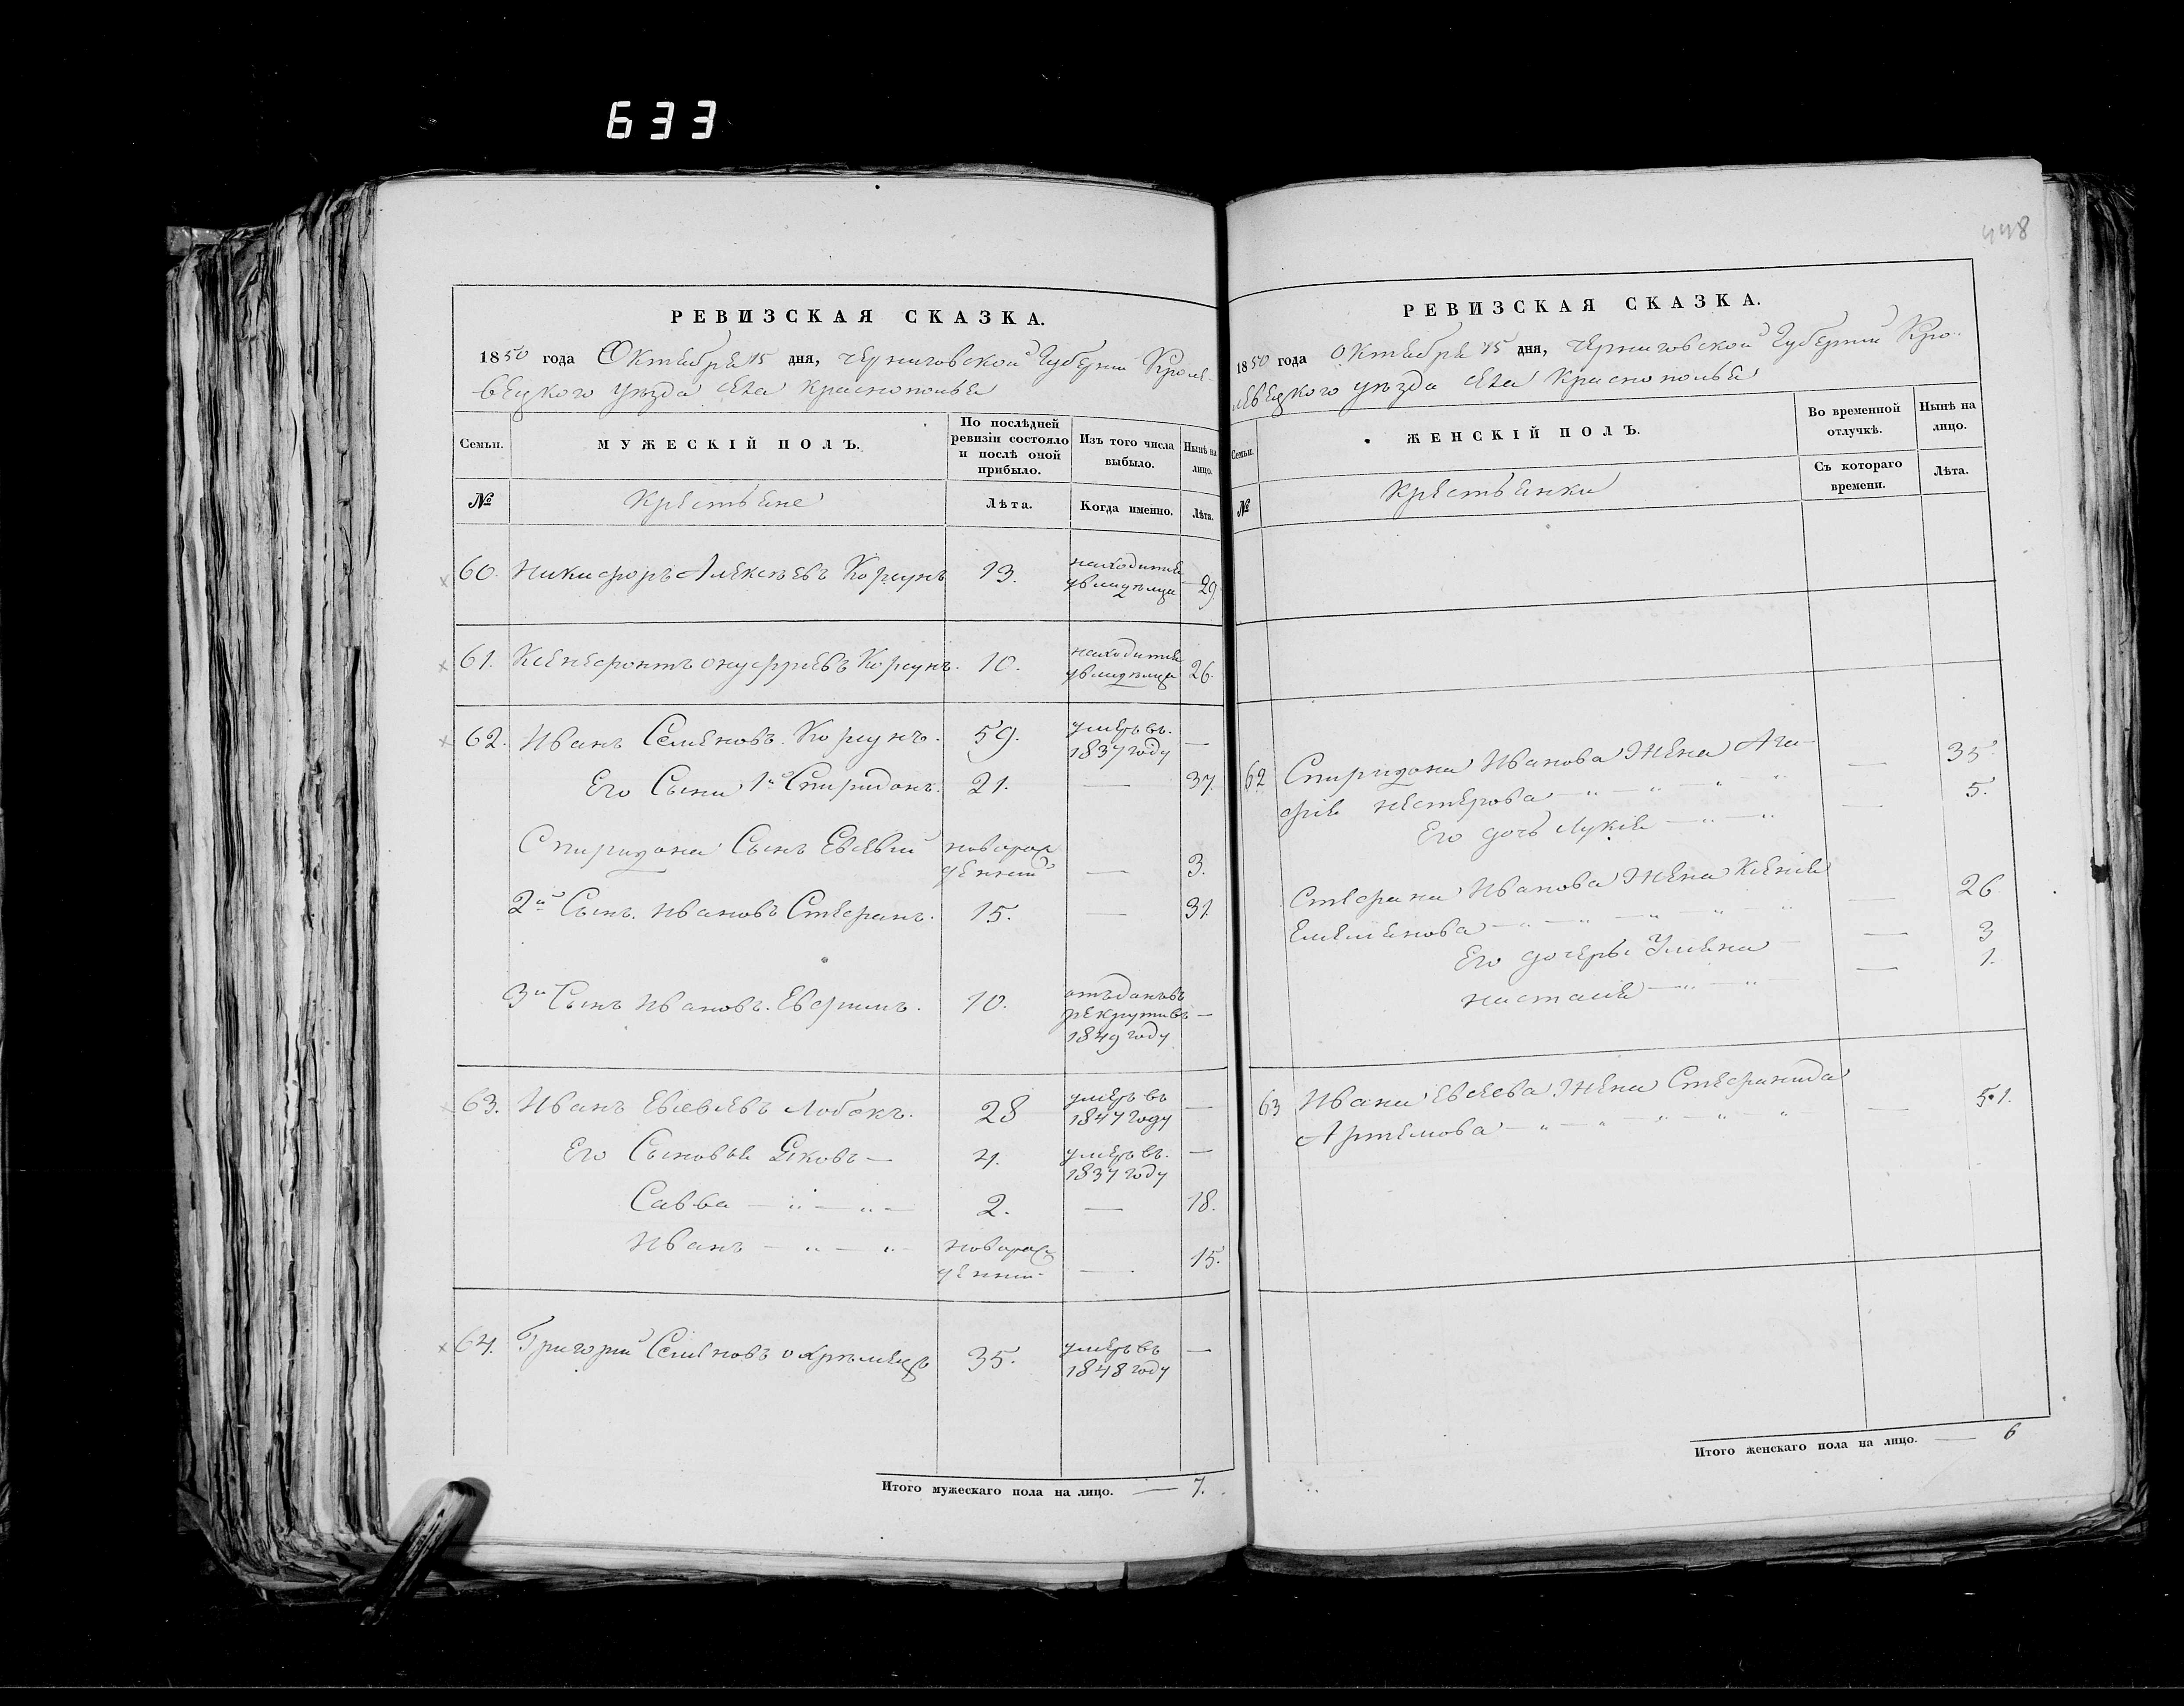 633
448
РЕВИЗСКАЯ СКАЗКА.
1850 года Октября 15 дня, Черниговской Губернии Кроле-
вецкого уѣзда села Краснополья
Семьи.
МУЖЕСКІЙ ПОЛЪ.
По послѣдней ревизіи состояло и послѣ оной прибыло.
Изъ того числа выбыло.
Нынѣ на лицо.
№
Крестьяне
Лѣта.
Когда именно.
Лѣта.
60. Никифоръ Алексѣевъ Корсунъ 13. находится 29.
61. Ксенефонтъ Онуфріевъ Корсунъ. 10. находится 26.
62. Иванъ Семеновъ Корсунъ. 59. умеръ въ 1837 году —
Его Сыни 1й Спиридонъ. 21. — 37.
Спиридона Сынъ Евсевій новорож
денный — 3.
2й Сынъ Ивановъ Стефанъ. 15. — 31.
3й Сынъ Ивановъ Евфимъ. 10. отъданъ въ рекруты въ 1849 году —
63. Иванъ Евсевьевъ Лобокъ. 28 умеръ въ 1847 году —
Его Сыновья Яковъ — 4. умеръ въ 1837 году —
Савва — „ — „ — 2. — 18.
Иванъ — „ — „ — новорож
денный — 15.
64. Григорій Семеновъ 35. умеръ въ 1848 году —
Итого мужескаго пола на лицо. — 7.
РЕВИЗСКАЯ СКАЗКА.
1850 года Октября 15 дня, Черниговской Губерніи Кро-
левецкого уѣзда села Краснополья
Семьи.
ЖЕНСКІЙ ПОЛЪ.
Во временной отлучкѣ.
Нынѣ на лицо.
№
Крестьянки
Съ котораго времени.
Лѣта.
62 Спиридона Иванова жена Ага-
фія Нестерова — „ — „ — „ — „ — 35
Его дочь Лукія — „ — „ — 5.
Стефана Иванова жена Ксенія
Емельянова — „ — „ — „ „ „ — 26
Его дочеры Уляна — — 3
Настасія — „ — „ — 1.
63 Ивана Евсеева жена Стефанида
Артемова — „ — „ — „ — „ — „ — 51.
Итого женскаго пола на лицо. — 6